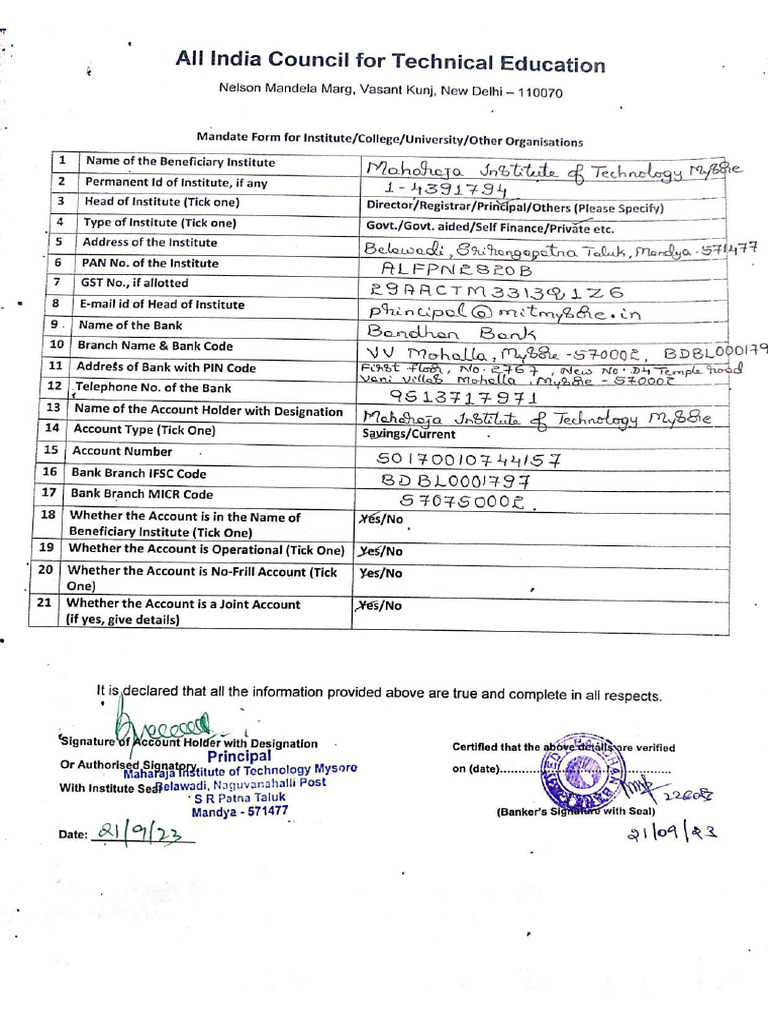 All India Council for Technical Education
Nelson Mandela Marg, Vasant Kunj, New Delhi – 110070
Mandate Form for Institute/College/University/Other Organisations
1 Name of the Beneficiary Institute Maharaja Institute of Technology Mysore
2 Permanent Id of Institute, if any 1-4391794
3 Head of Institute (Tick one) Director/Registrar/Principal/Others (Please Specify)
4 Type of Institute (Tick one) Govt./Govt. aided/Self Finance/Private etc.
5 Address of the Institute Belawadi, Srirangapatna Taluk, Mandya-571477
6 PAN No. of the Institute ALFPN2820B
7 GST No., if allotted 29AACTM3313Q1Z6
8 E-mail id of Head of Institute principal@mitmysore.in
9 Name of the Bank Bandhan Bank
10 Branch Name & Bank Code VV Mohalla, Mysore-570002, BDBL000179
11 Address of Bank with PIN Code First Floor, No. 2767, New No. D4 Temple road
Vani Villas Mohalla, Mysore - 570002
12 Telephone No. of the Bank 9513717971
13 Name of the Account Holder with Designation Maharaja Institute of Technology Mysore
14 Account Type (Tick One) Savings/Current
15 Account Number 50170010744157
16 Bank Branch IFSC Code BDBL0001797
17 Bank Branch MICR Code 570750002.
18 Whether the Account is in the Name of Yes/No
Beneficiary Institute (Tick One)
19 Whether the Account is Operational (Tick One) Yes/No
20 Whether the Account is No-Frill Account (Tick Yes/No
One)
21 Whether the Account is a Joint Account Yes/No
(if yes, give details)
It is declared that all the information provided above are true and complete in all respects.
Signature of Account Holder with Designation
Principal
Or Authorised Signatory
Maharaja Institute of Technology Mysore
With Institute Seal
Belawadi, Naguvanahalli Post
S R Patna Taluk
Mandya - 571477
Date: 21/9/23
Certified that the above details are verified
on (date)
(Banker's Signature with Seal)
21/09/23